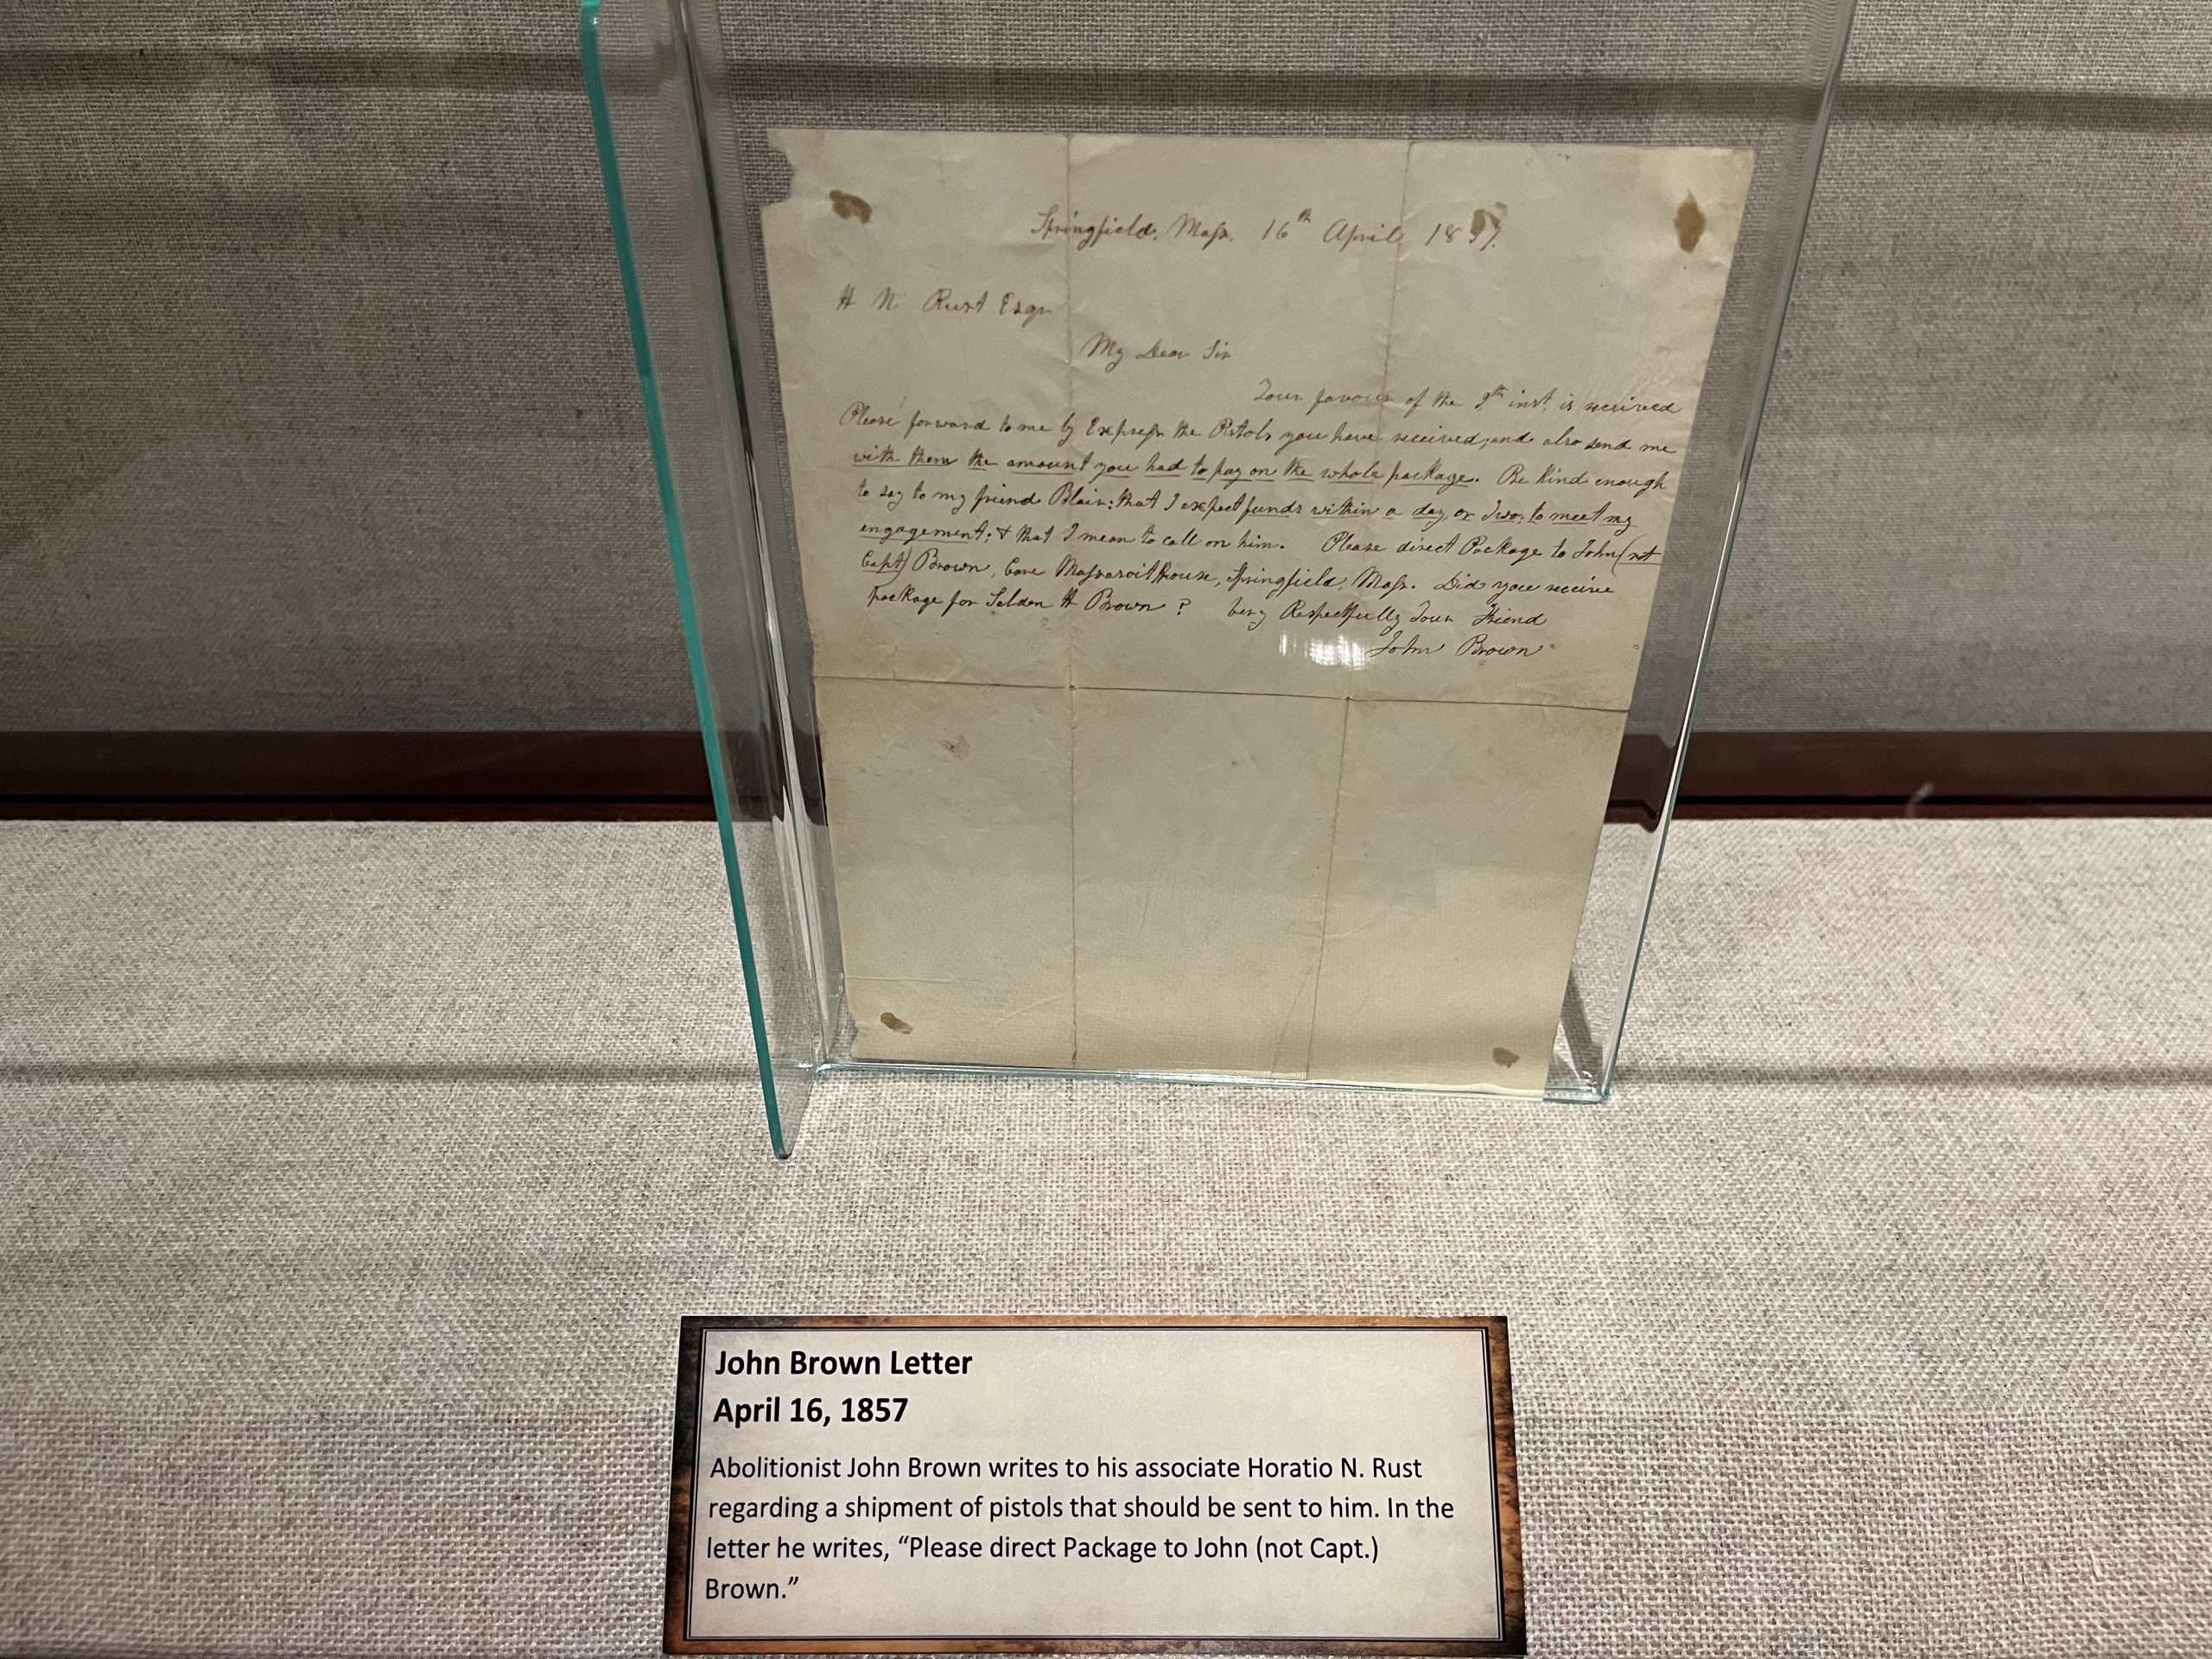 Springfield, Mass. 16th April 1857.
H N Rust Esqr
My Dear Sir
Your favour of the 9th inst. is received
Please forward to me by Express the Pistols you have received, and also send me
with them the amount you had to pay on the whole package. Be kind enough
to say to my friend Blair: that I expect funds within a day, or Two, to meet my
engagement; & that I mean to call on him. Please direct Package to John (not
Capt) Brown, Care Massasoit House, Springfield, Mass. Did you receive
package for Selden H Brown? Very Respectfully Your Friend
John Brown
John Brown Letter
April 16, 1857
Abolitionist John Brown writes to his associate Horatio N. Rust
regarding a shipment of pistols that should be sent to him. In the
letter he writes, “Please direct Package to John (not Capt.)
Brown.”